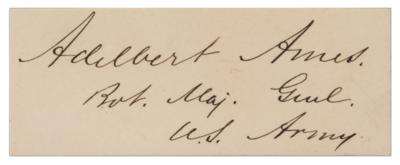 Adelbert Ames.
Bvt. Maj. Genl.
U.S. Army.